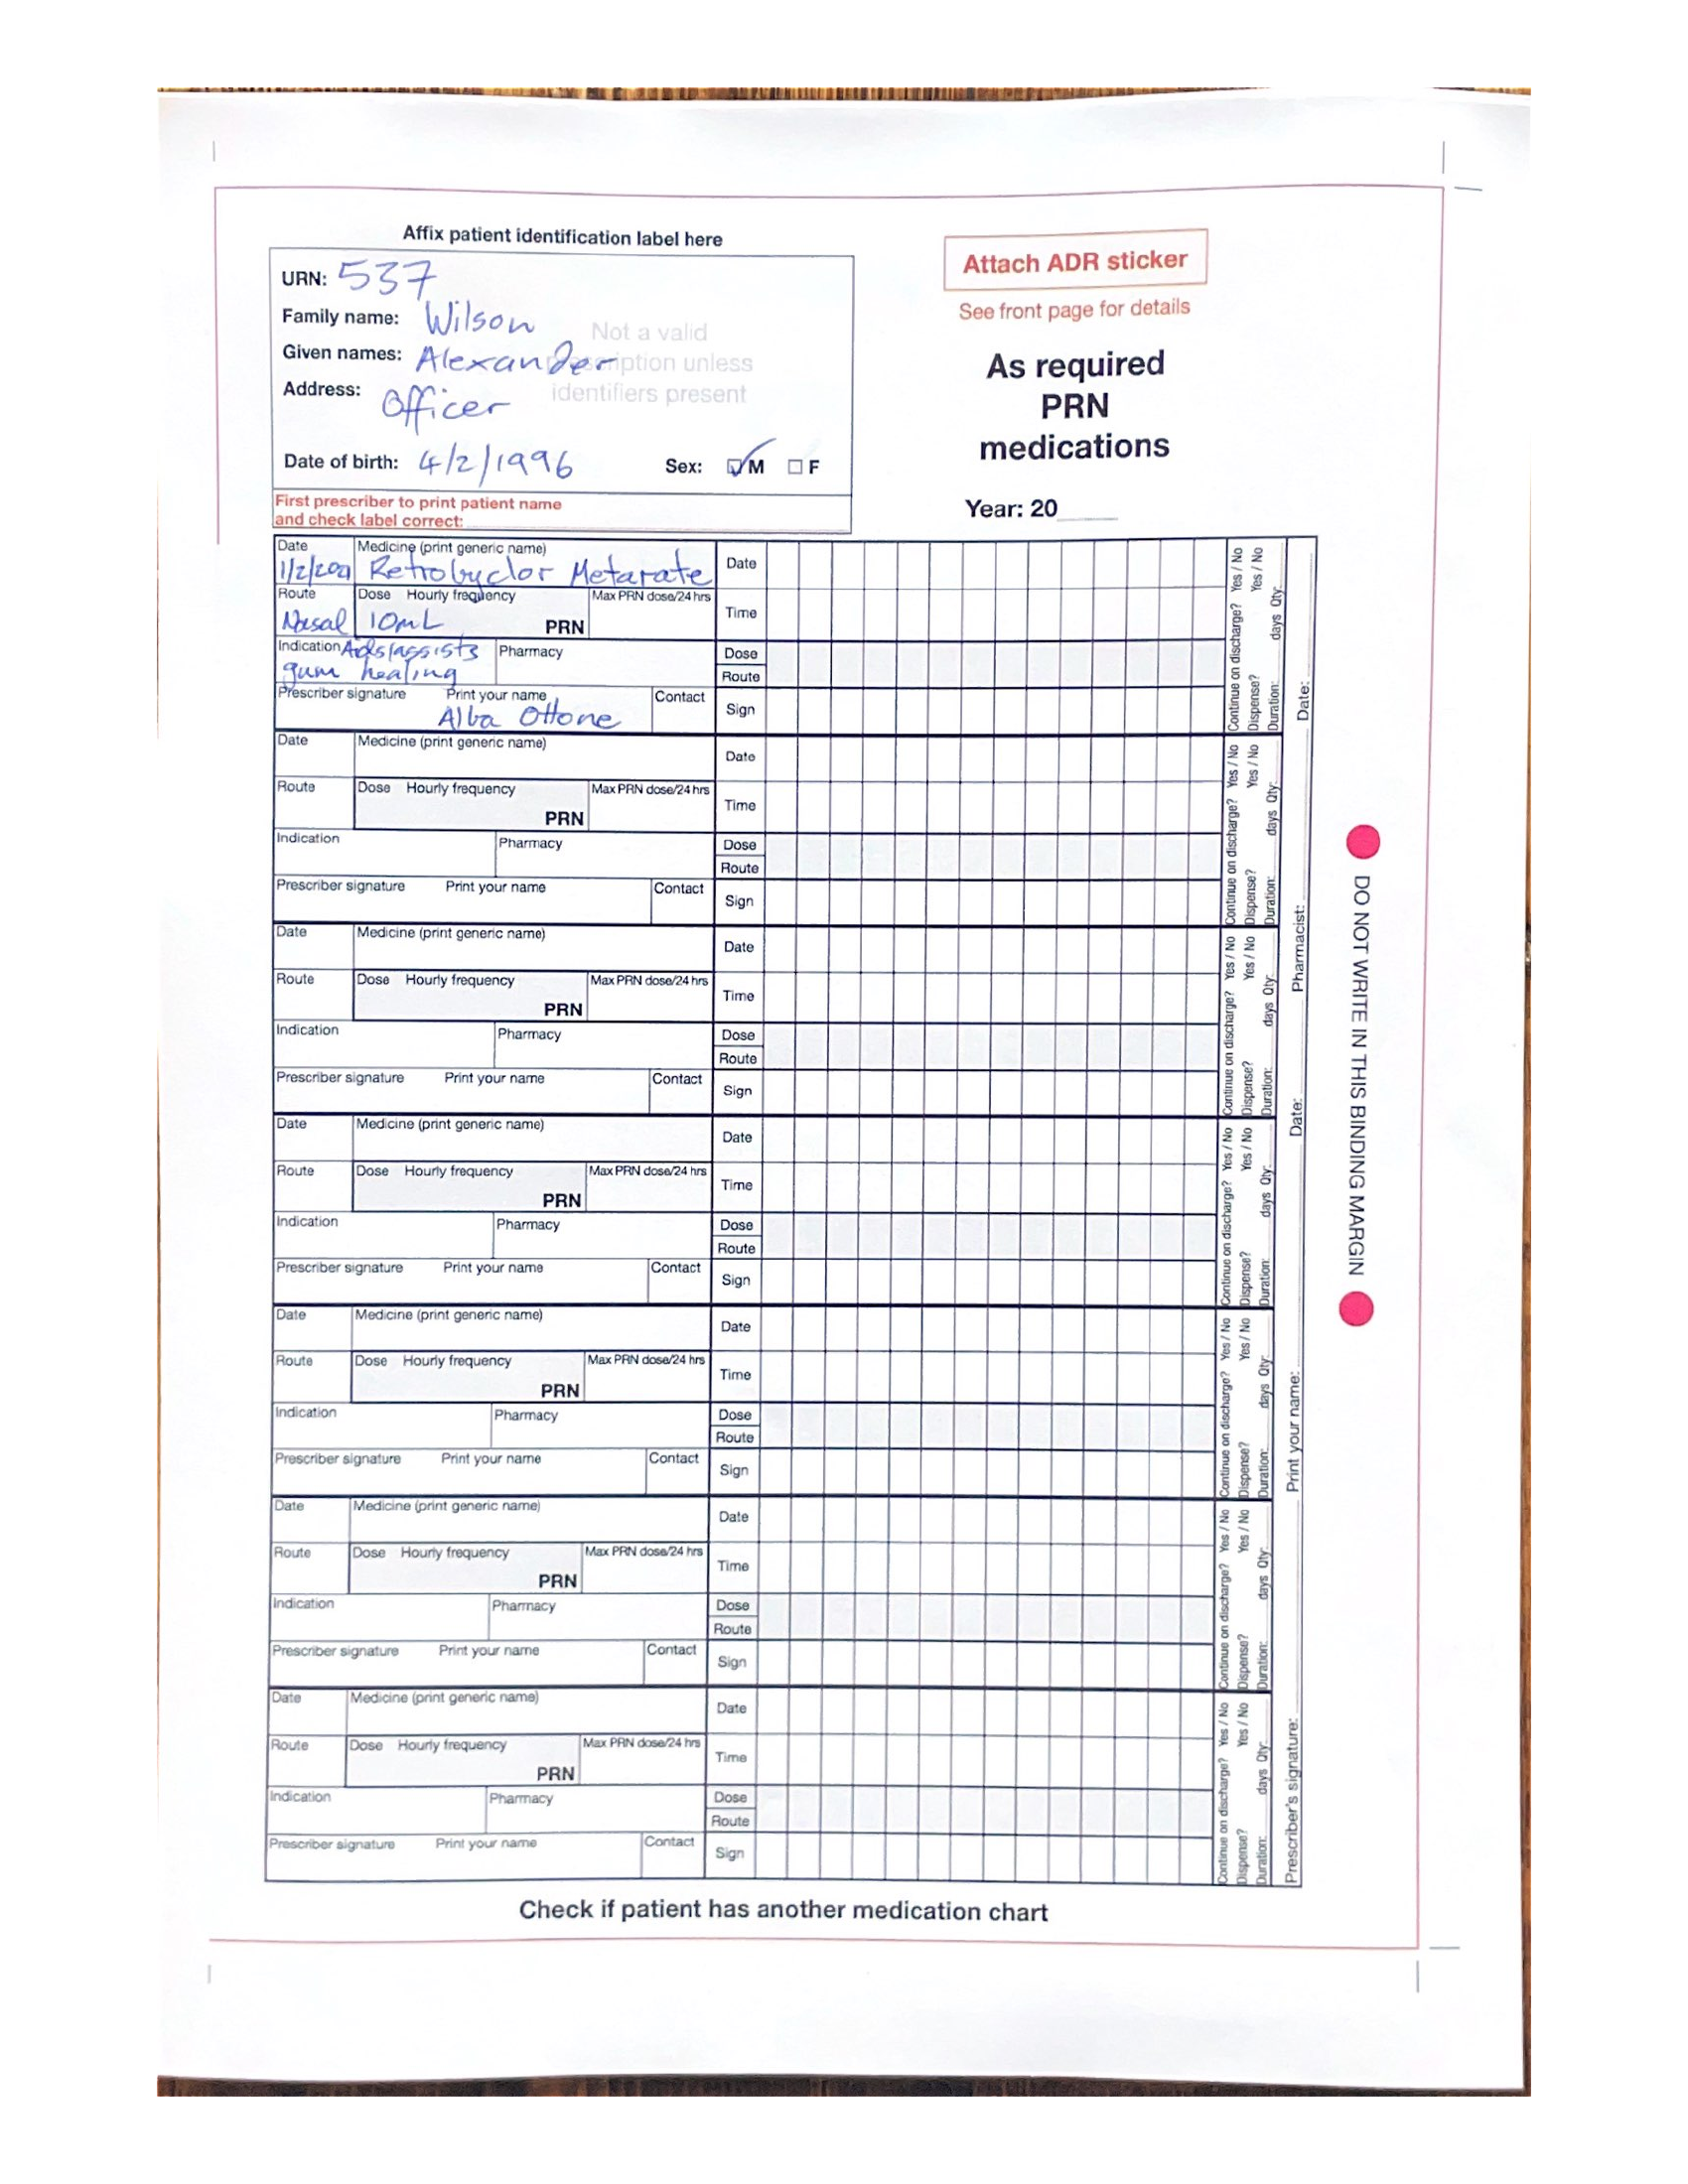 Affix patient identification label here
URN: 537
Family name: Wilson
Given names: Alexander
Address: Officer
Not a valid
prescription unless
identifiers present
Date of birth: 4/2/1996 Sex: M F
First prescriber to print patient name
and check label correct:
Attach ADR sticker
See front page for details
As required
PRN
medications
Year: 20
Date Medicine (print generic name) Date
Retrobyclor Metarate
Route Dose Hourly frequency Max PRN dose/24 hrs Time
Nasal 10mL PRN
Indication Aids/assists Pharmacy Dose
gum healing Route
Prescriber signature Print your name Contact Sign
Alba Ottone
Continue on discharge? Yes / No
Dispense? Yes / No
Duration: days Qty:
Date Medicine (print generic name) Date
Route Dose Hourly frequency Max PRN dose/24 hrs Time
PRN
Indication Pharmacy Dose
Route
Prescriber signature Print your name Contact Sign
Continue on discharge? Yes / No
Dispense? Yes / No
Duration: days Qty:
Date Medicine (print generic name) Date
Route Dose Hourly frequency Max PRN dose/24 hrs Time
PRN
Indication Pharmacy Dose
Route
Prescriber signature Print your name Contact Sign
Continue on discharge? Yes / No
Dispense? Yes / No
Duration: days Qty:
Date Medicine (print generic name) Date
Route Dose Hourly frequency Max PRN dose/24 hrs Time
PRN
Indication Pharmacy Dose
Route
Prescriber signature Print your name Contact Sign
Continue on discharge? Yes / No
Dispense? Yes / No
Duration: days Qty:
Date Medicine (print generic name) Date
Route Dose Hourly frequency Max PRN dose/24 hrs Time
PRN
Indication Pharmacy Dose
Route
Prescriber signature Print your name Contact Sign
Continue on discharge? Yes / No
Dispense? Yes / No
Duration: days Qty:
Date Medicine (print generic name) Date
Route Dose Hourly frequency Max PRN dose/24 hrs Time
PRN
Indication Pharmacy Dose
Route
Prescriber signature Print your name Contact Sign
Continue on discharge? Yes / No
Dispense? Yes / No
Duration: days Qty:
Date Medicine (print generic name) Date
Route Dose Hourly frequency Max PRN dose/24 hrs Time
PRN
Indication Pharmacy Dose
Route
Prescriber signature Print your name Contact Sign
Continue on discharge? Yes / No
Dispense? Yes / No
Duration: days Qty:
Prescriber's signature: Print your name: Date: Pharmacist: Date:
DO NOT WRITE IN THIS BINDING MARGIN
Check if patient has another medication chart